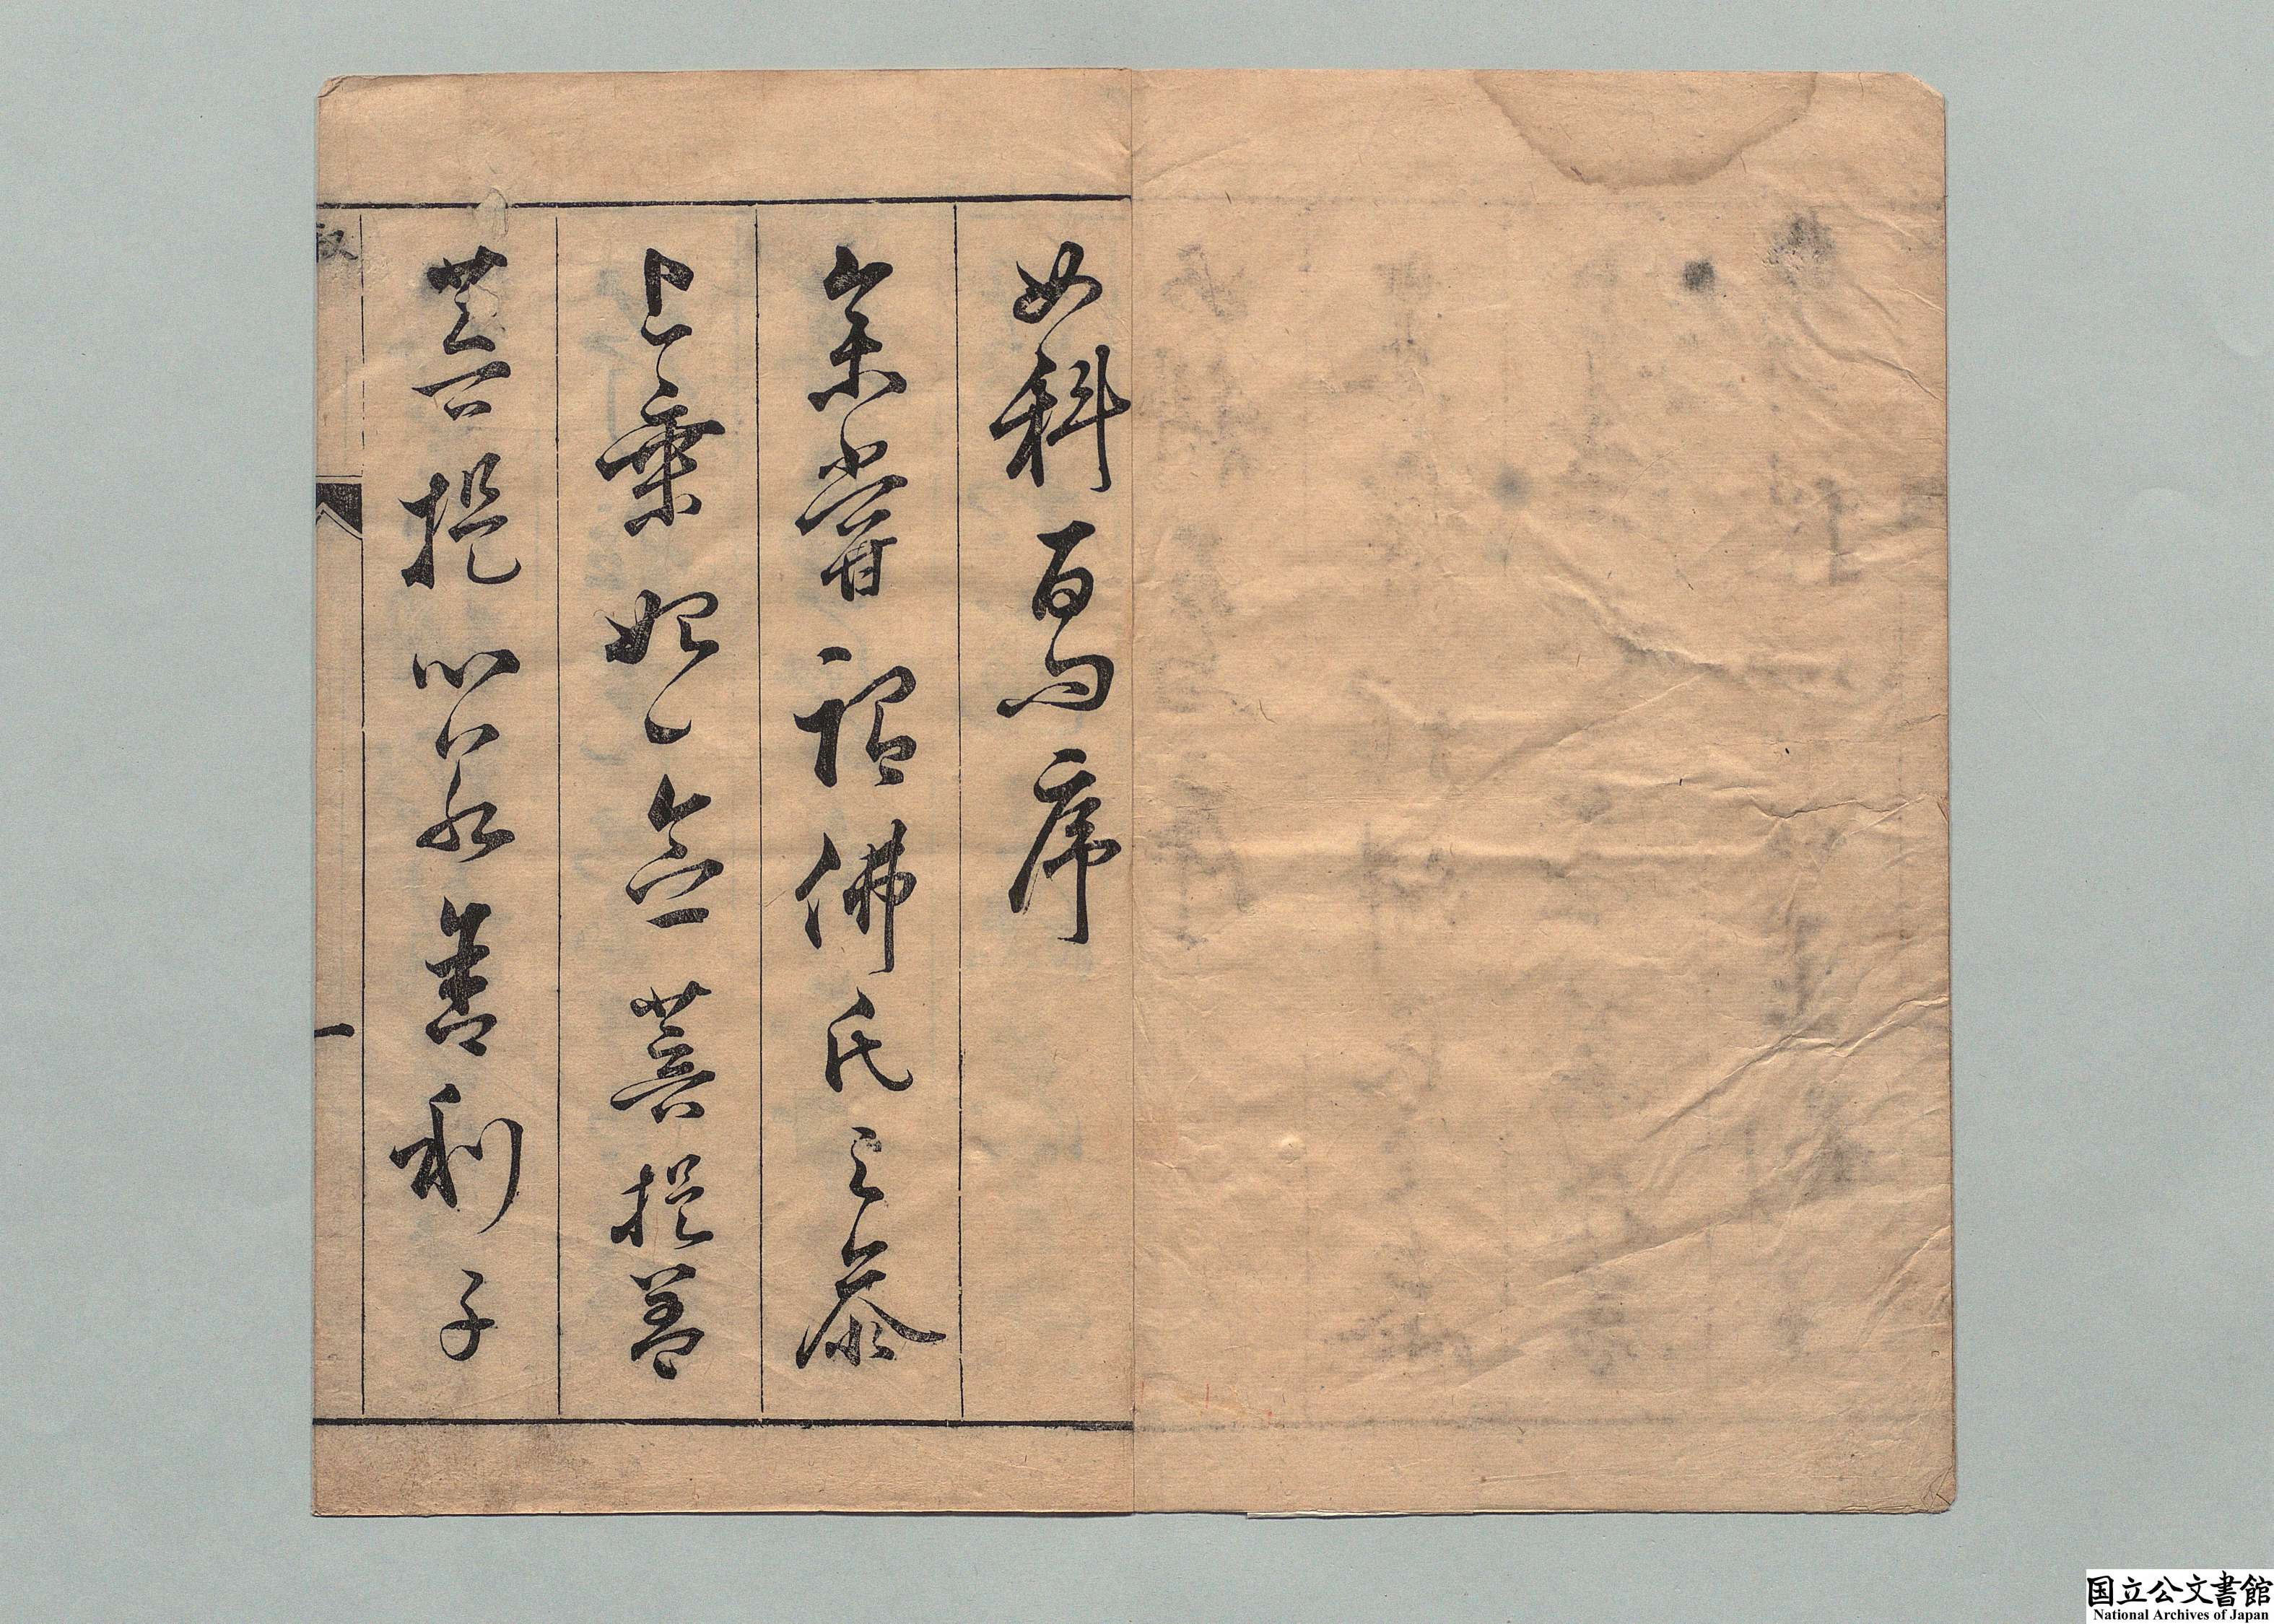 女科百問序
余嘗謂佛氏之參
上乘始念菩提蓋
菩提以衆善利子
叙
一
国立公文書館
National Archives of Japan